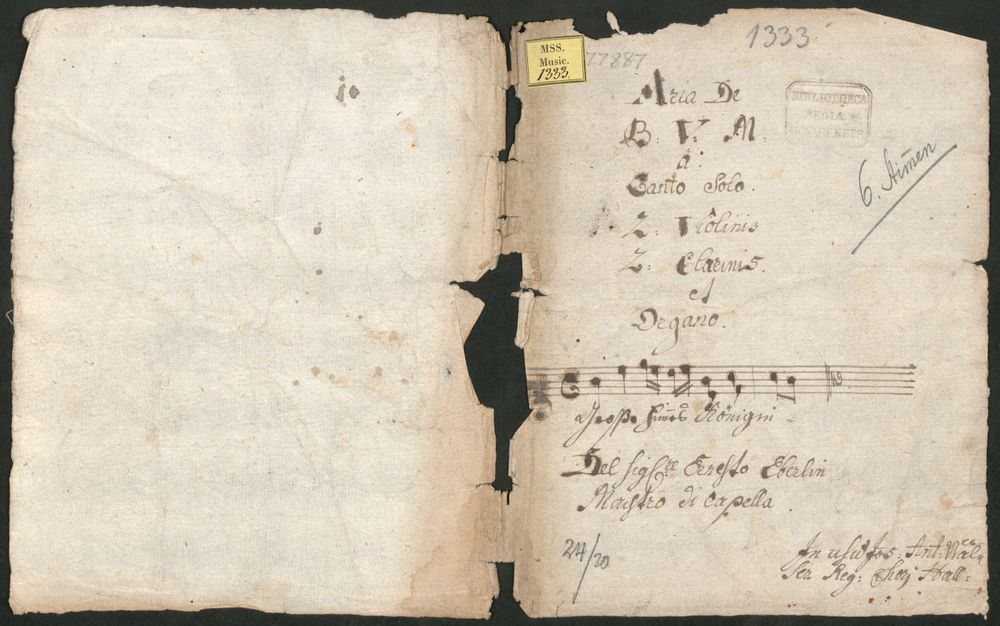 1333
MSS.
Music.
1333.
77887
BIBLIOTHECA
REGIA
MONACENSIS
Aria De
B: V: M.
á:
Canto Solo.
2: Violinis
2: Clarinis.
et
Organo.
6. Stimmen
Große Him̅els Königin
Del Sigre Ernesto Eberlin
Maestro di Capella
24/20
In usu Jos: Ant:
Ser. Reg: Chori Hall: